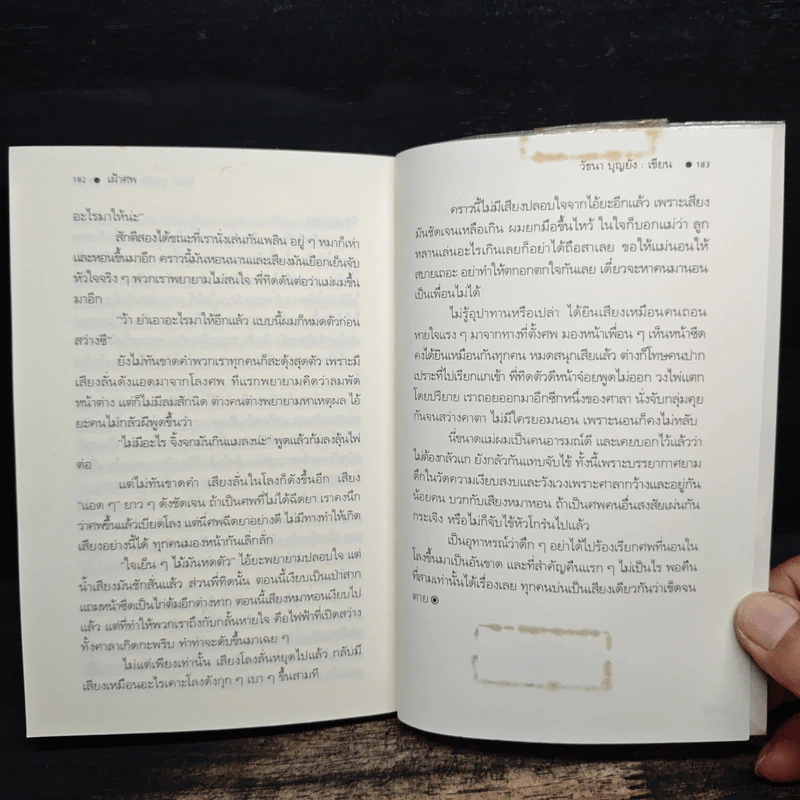 182 ● เฝ้าศพ
อะไรมาให้น่ะ”
สักตีสองได้ขณะที่เรานั่งเล่นกันเพลิน อยู่ ๆ หมาก็เห่า
และหอนขึ้นมาอีก คราวนี้มันหอนนานและเสียงมันเยือกเย็นจับ
หัวใจจริง ๆ พวกเราพยายามไม่สนใจ พี่ทิดดันต่อว่าแม่ผมขึ้น
มาอีก
“ว้า ย่าเอาอะไรมาให้อีกแล้ว แบบนี้ผมก็หมดตัวก่อน
สว่างซี”
ยังไม่ทันขาดคำพวกเราทุกคนก็สะดุ้งสุดตัว เพราะมี
เสียงลั่นดังแอดมาจากโลงศพ ทีแรกพยายามคิดว่าลมพัด
หน้าต่าง แต่ก็ไม่มีลมสักนิด ต่างคนต่างพยายามหาเหตุผล ไอ้
ยะคนไม่กลัวผีพูดขึ้นว่า
“ไม่มีอะไร จิ้งจกมันกินแมลงน่ะ” พูดแล้วก้มลงลุ้นไพ่
ต่อ
แต่ไม่ทันขาดคำ เสียงลั่นในโลงก็ดังขึ้นอีก เสียง
“แอด ๆ” ยาว ๆ ดังชัดเจน ถ้าเป็นศพที่ไม่ได้ฉีดยา เราคงนึก
ว่าศพขึ้นแล้วเบียดโลง แต่นี่ศพฉีดยาอย่างดี ไม่มีทางทำให้เกิด
เสียงอย่างนี้ได้ ทุกคนมองหน้ากันเลิ่กลั่ก
“ใจเย็น ๆ ไม้มันหดตัว” ไอ้ยะพยายามปลอบใจ แต่
น้ำเสียงมันชักสั่นแล้ว ส่วนพี่ทิดนั้น ตอนนี้เงียบเป็นเป่าสาก
แถมหน้าซีดเป็นไก่ต้มอีกต่างหาก ตอนนี้เสียงหมาหอนเงียบไป
แล้ว แต่ที่ทำให้พวกเราถึงกับกลั้นหายใจ คือไฟฟ้าที่เปิดสว่าง
ทั้งศาลาเกิดกะพริบ ทำท่าจะดับขึ้นมาเฉย ๆ
ไม่แต่เพียงเท่านั้น เสียงโลงลั่นหยุดไปแล้ว กลับมี
เสียงเหมือนอะไรเคาะโลงดังกุก ๆ เบา ๆ ขึ้นสามที
วัธนา บุญยัง : เขียน ● 183
คราวนี้ไม่มีเสียงปลอบใจจากไอ้ยะอีกแล้ว เพราะเสียง
มันชัดเจนเหลือเกิน ผมยกมือขึ้นไหว้ ในใจก็บอกแม่ว่า ลูก
หลานเล่นอะไรเกินเลยก็อย่าได้ถือสาเลย ขอให้แม่นอนให้
สบายเถอะ อย่าทำให้ตกอกตกใจกันเลย เดี๋ยวจะหาคนมานอน
เป็นเพื่อนไม่ได้
ไม่รู้อุปาทานหรือเปล่า ได้ยินเสียงเหมือนคนถอน
หายใจแรง ๆ มาจากทางที่ตั้งศพ มองหน้าเพื่อน ๆ เห็นหน้าซีด
คงได้ยินเหมือนกันทุกคน หมดสนุกเสียแล้ว ต่างก็โทษคนปาก
เปราะที่ไปเรียกแกเข้า พี่ทิดตัวดีหน้าจ๋อยพูดไม่ออก วงไพ่แตก
โดยปริยาย เราถอยออกมาอีกซีกหนึ่งของศาลา นั่งจับกลุ่มคุย
กันจนสว่างคาตา ไม่มีใครยอมนอน เพราะนอนก็คงไม่หลับ
นี่ขนาดแม่ผมเป็นคนอารมณ์ดี และเคยบอกไว้แล้วว่า
ไม่ต้องกลัวแก ยังกลัวกันแทบจับไข้ ทั้งนี้เพราะบรรยากาศยาม
ดึกในวัดความเงียบสงบและวังเวงเพราะศาลากว้างและอยู่กัน
น้อยคน บวกกับเสียงหมาหอน ถ้าเป็นศพคนอื่นสงสัยเผ่นกัน
กระเจิง หรือไม่ก็จับไข้หัวโกร๋นไปแล้ว
เป็นอุทาหรณ์ว่าดึก ๆ อย่าได้ไปร้องเรียกศพที่นอนใน
โลงขึ้นมาเป็นอันขาด และที่สำคัญคืนแรก ๆ ไม่เป็นไร พอคืน
ที่สามเท่านั้นได้เรื่องเลย ทุกคนบ่นเป็นเสียงเดียวกันว่าเข็ดจน
ตาย